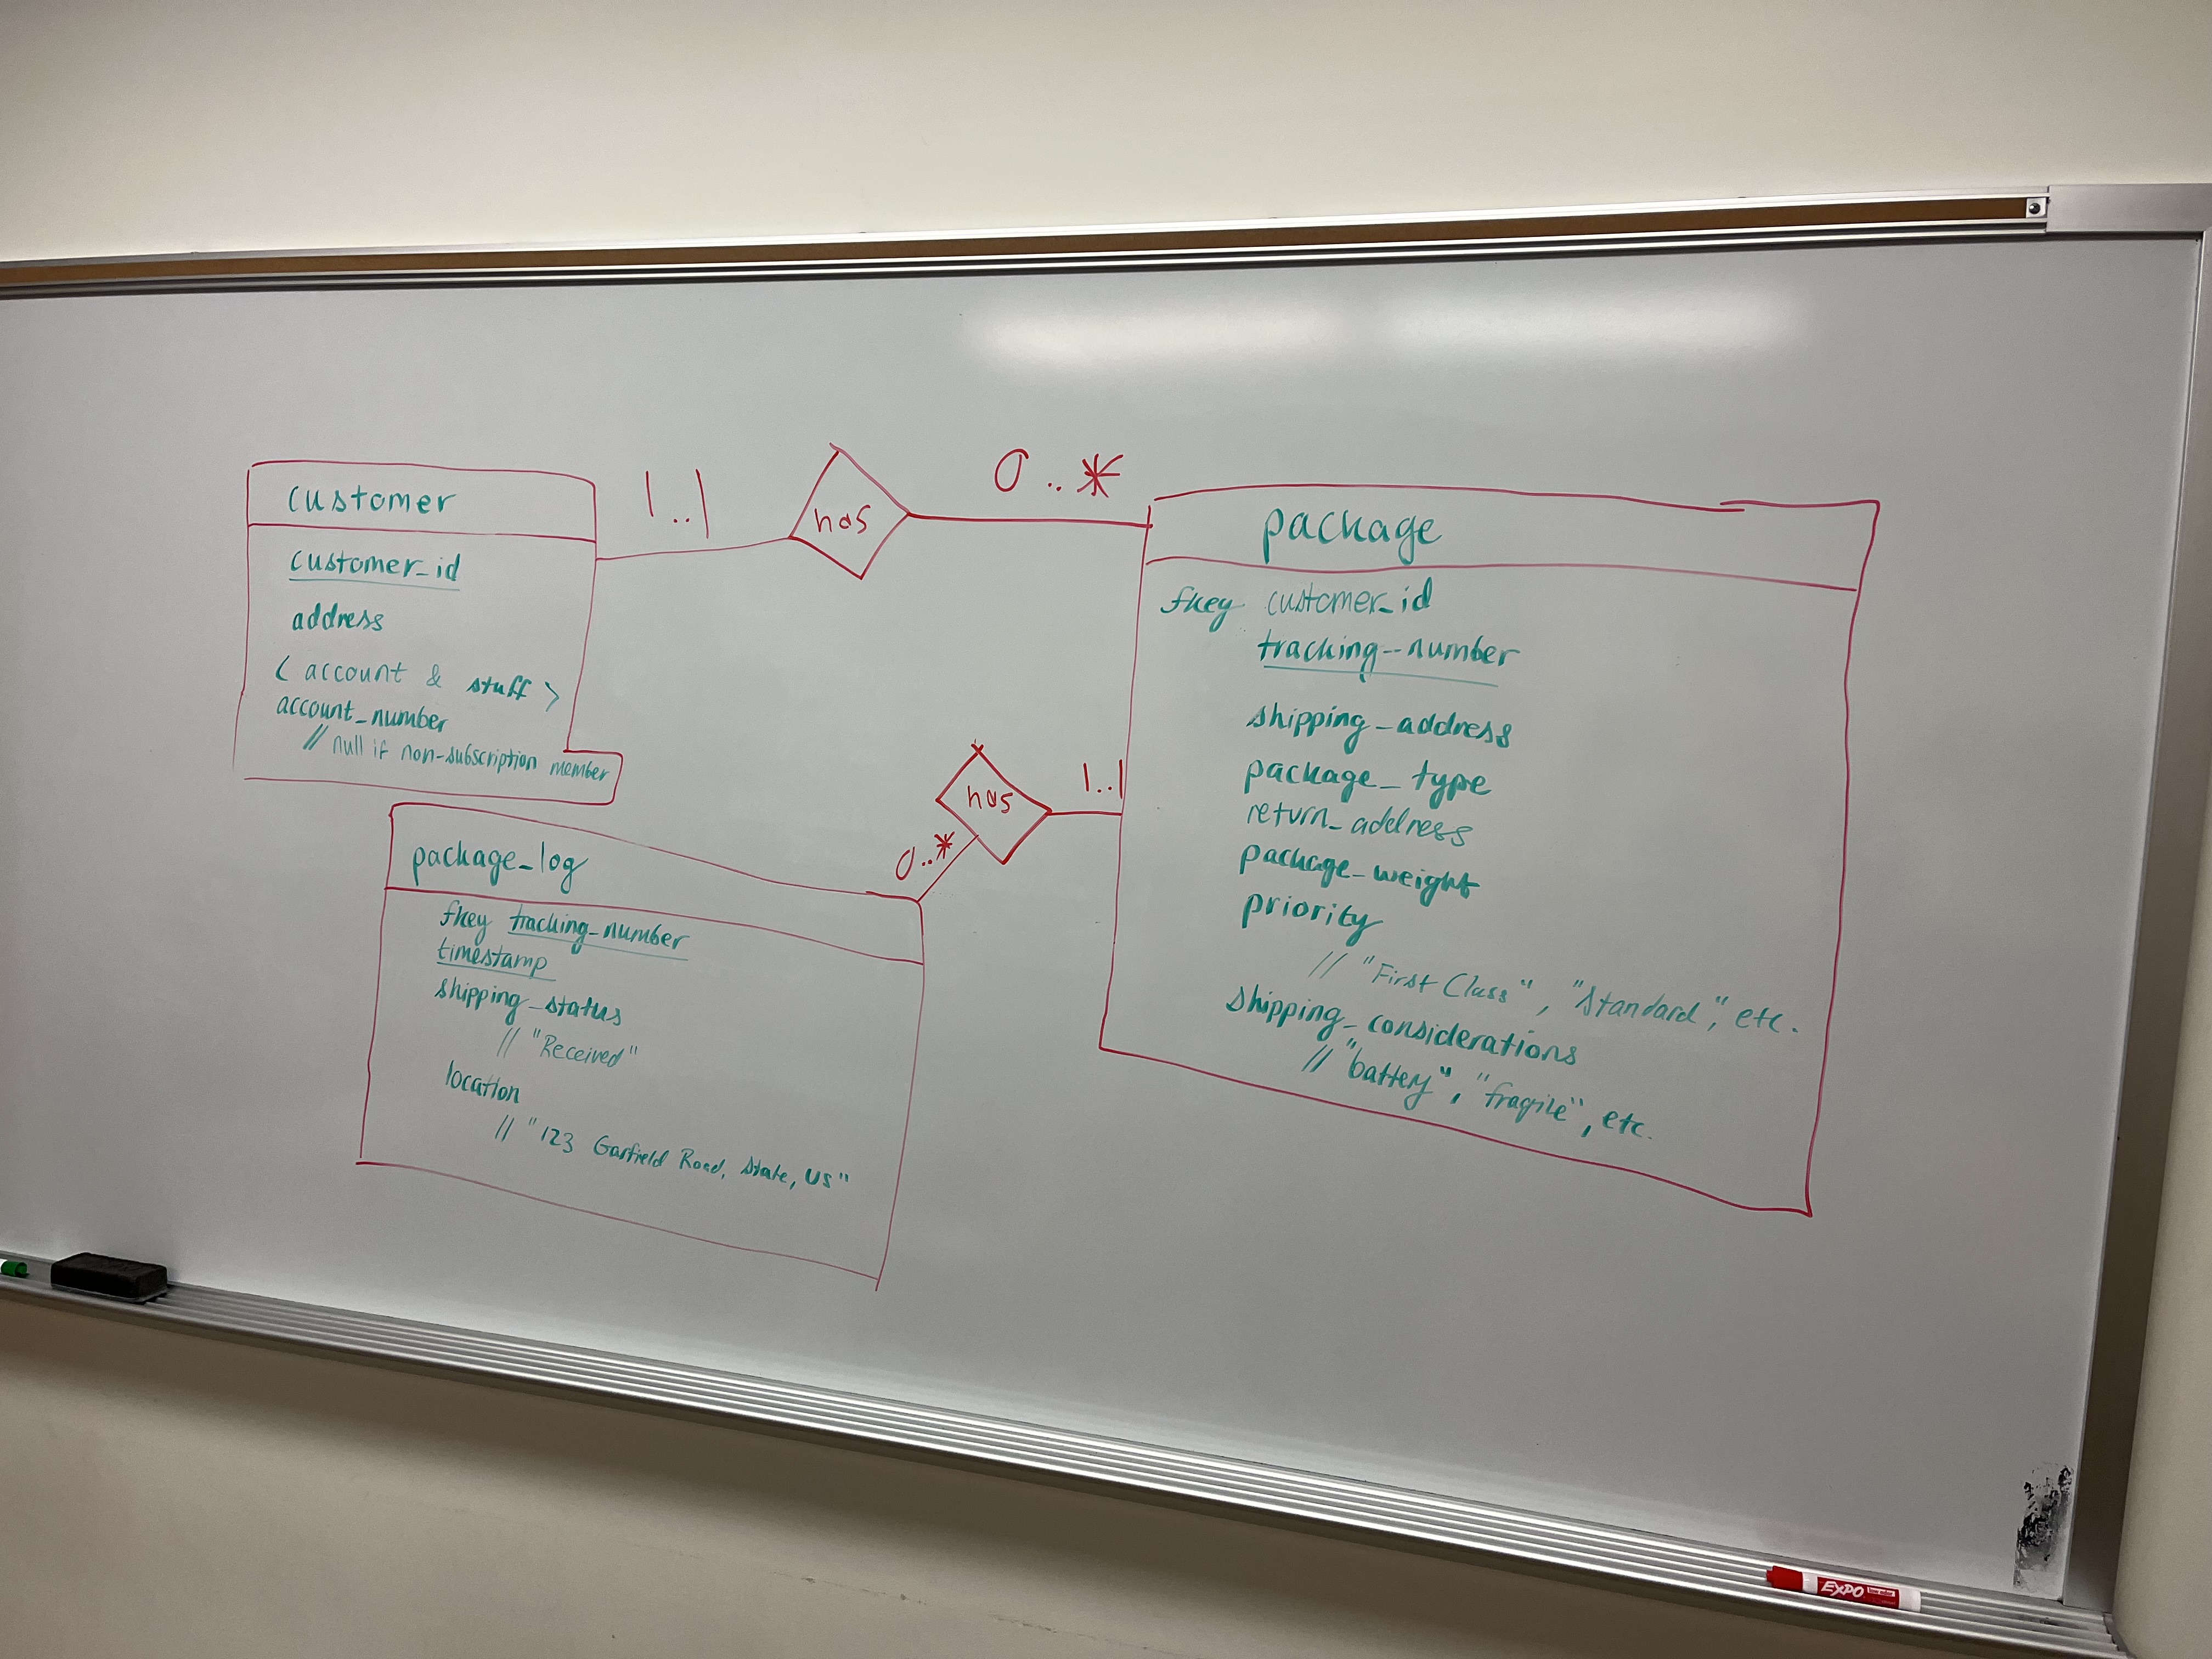 customer
customer_id
address
< account & stuff >
account_number
// null if non-subscription member
1..1
has
0..*
package
fkey customer_id
tracking_number
shipping_address
package_type
return_address
package_weight
priority
// "First Class", "Standard", etc.
shipping_considerations
// "battery", "fragile", etc.
1..1
has
0..*
package_log
fkey tracking_number
timestamp
shipping_status
// "Received"
location
// "123 Garfield Road, State, US"
EXPO